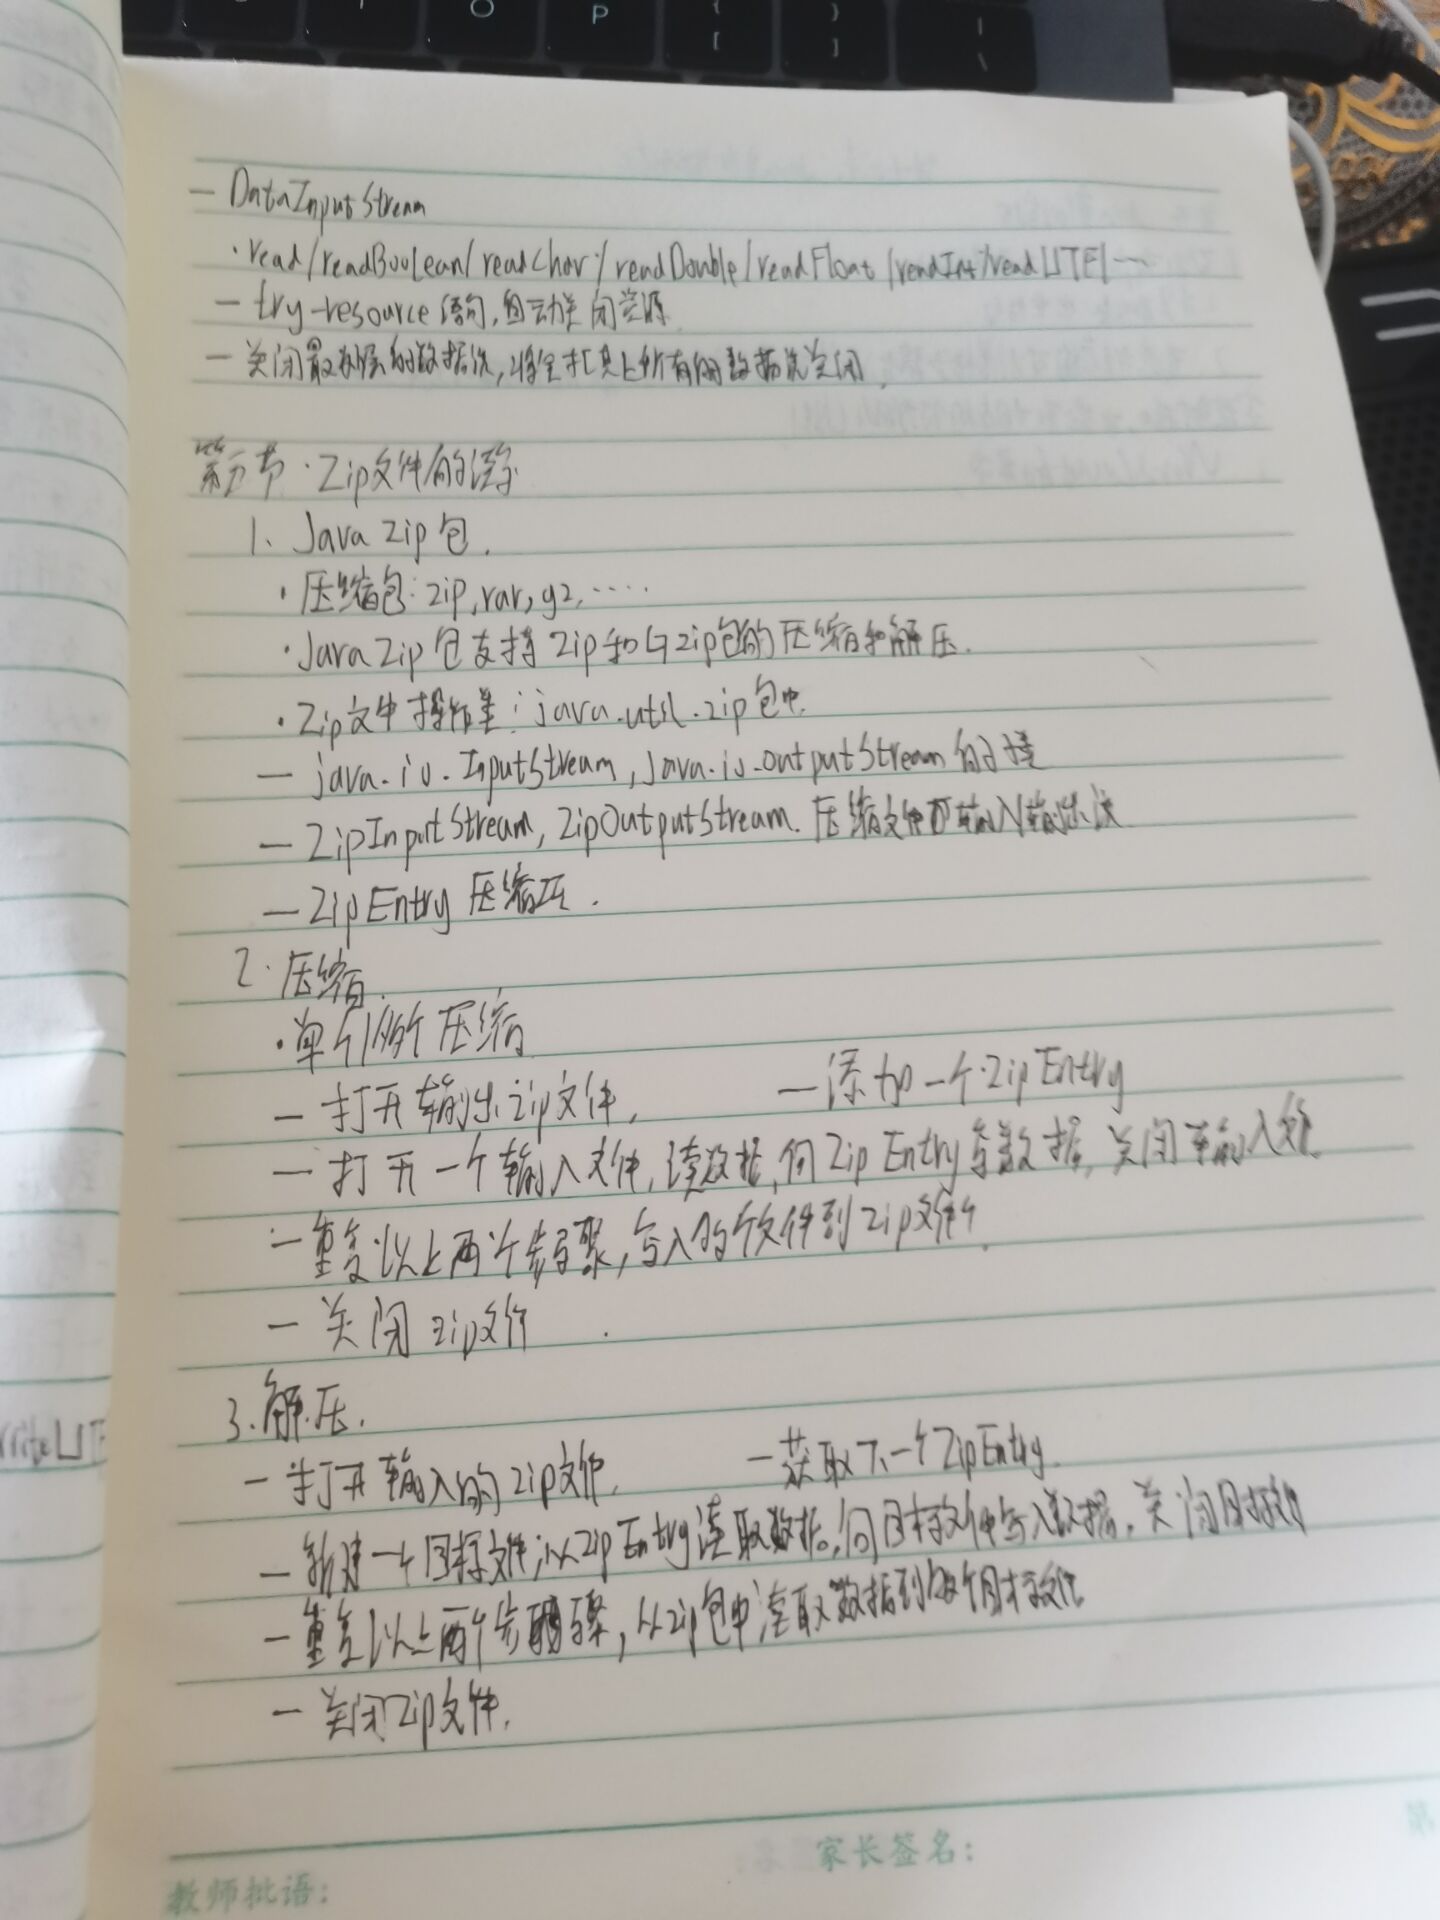 O P { [ } ] | \
— DataInputStream
·read/readBoolean/readChar/readDouble/readFloat/readInt/readUTF/…
— try-resource语句,自动关闭资源
— 关闭最外层的数据流,将会把其上所有的数据流关闭.
第五节·Zip文件的读写
1、Java Zip包.
·压缩包:zip,rar,gz,……
·Java Zip包支持Zip和Gzip包的压缩和解压.
·Zip文件操作类:java.util.zip包中
— java.io.InputStream, java.io.OutputStream的子类
— ZipInputStream, ZipOutputStream.压缩文件的输入输出流
— ZipEntry 压缩项.
2.压缩.
·单个/多个压缩
— 打开输出zip文件. — 添加一个ZipEntry
— 打开一个输入文件,读数据,向ZipEntry写数据,关闭输入文件
— 重复以上两个步骤,写入多个文件到zip文件中.
— 关闭zip文件.
3.解压.
— 打开输入的zip文件. — 获取下一个ZipEntry.
— 新建一个目标文件,从ZipEntry读取数据,向目标文件中写入数据,关闭目标文件
— 重复以上两个步骤,从zip包中读取数据到多个目标文件
— 关闭Zip文件.
家长签名:
教师批语: